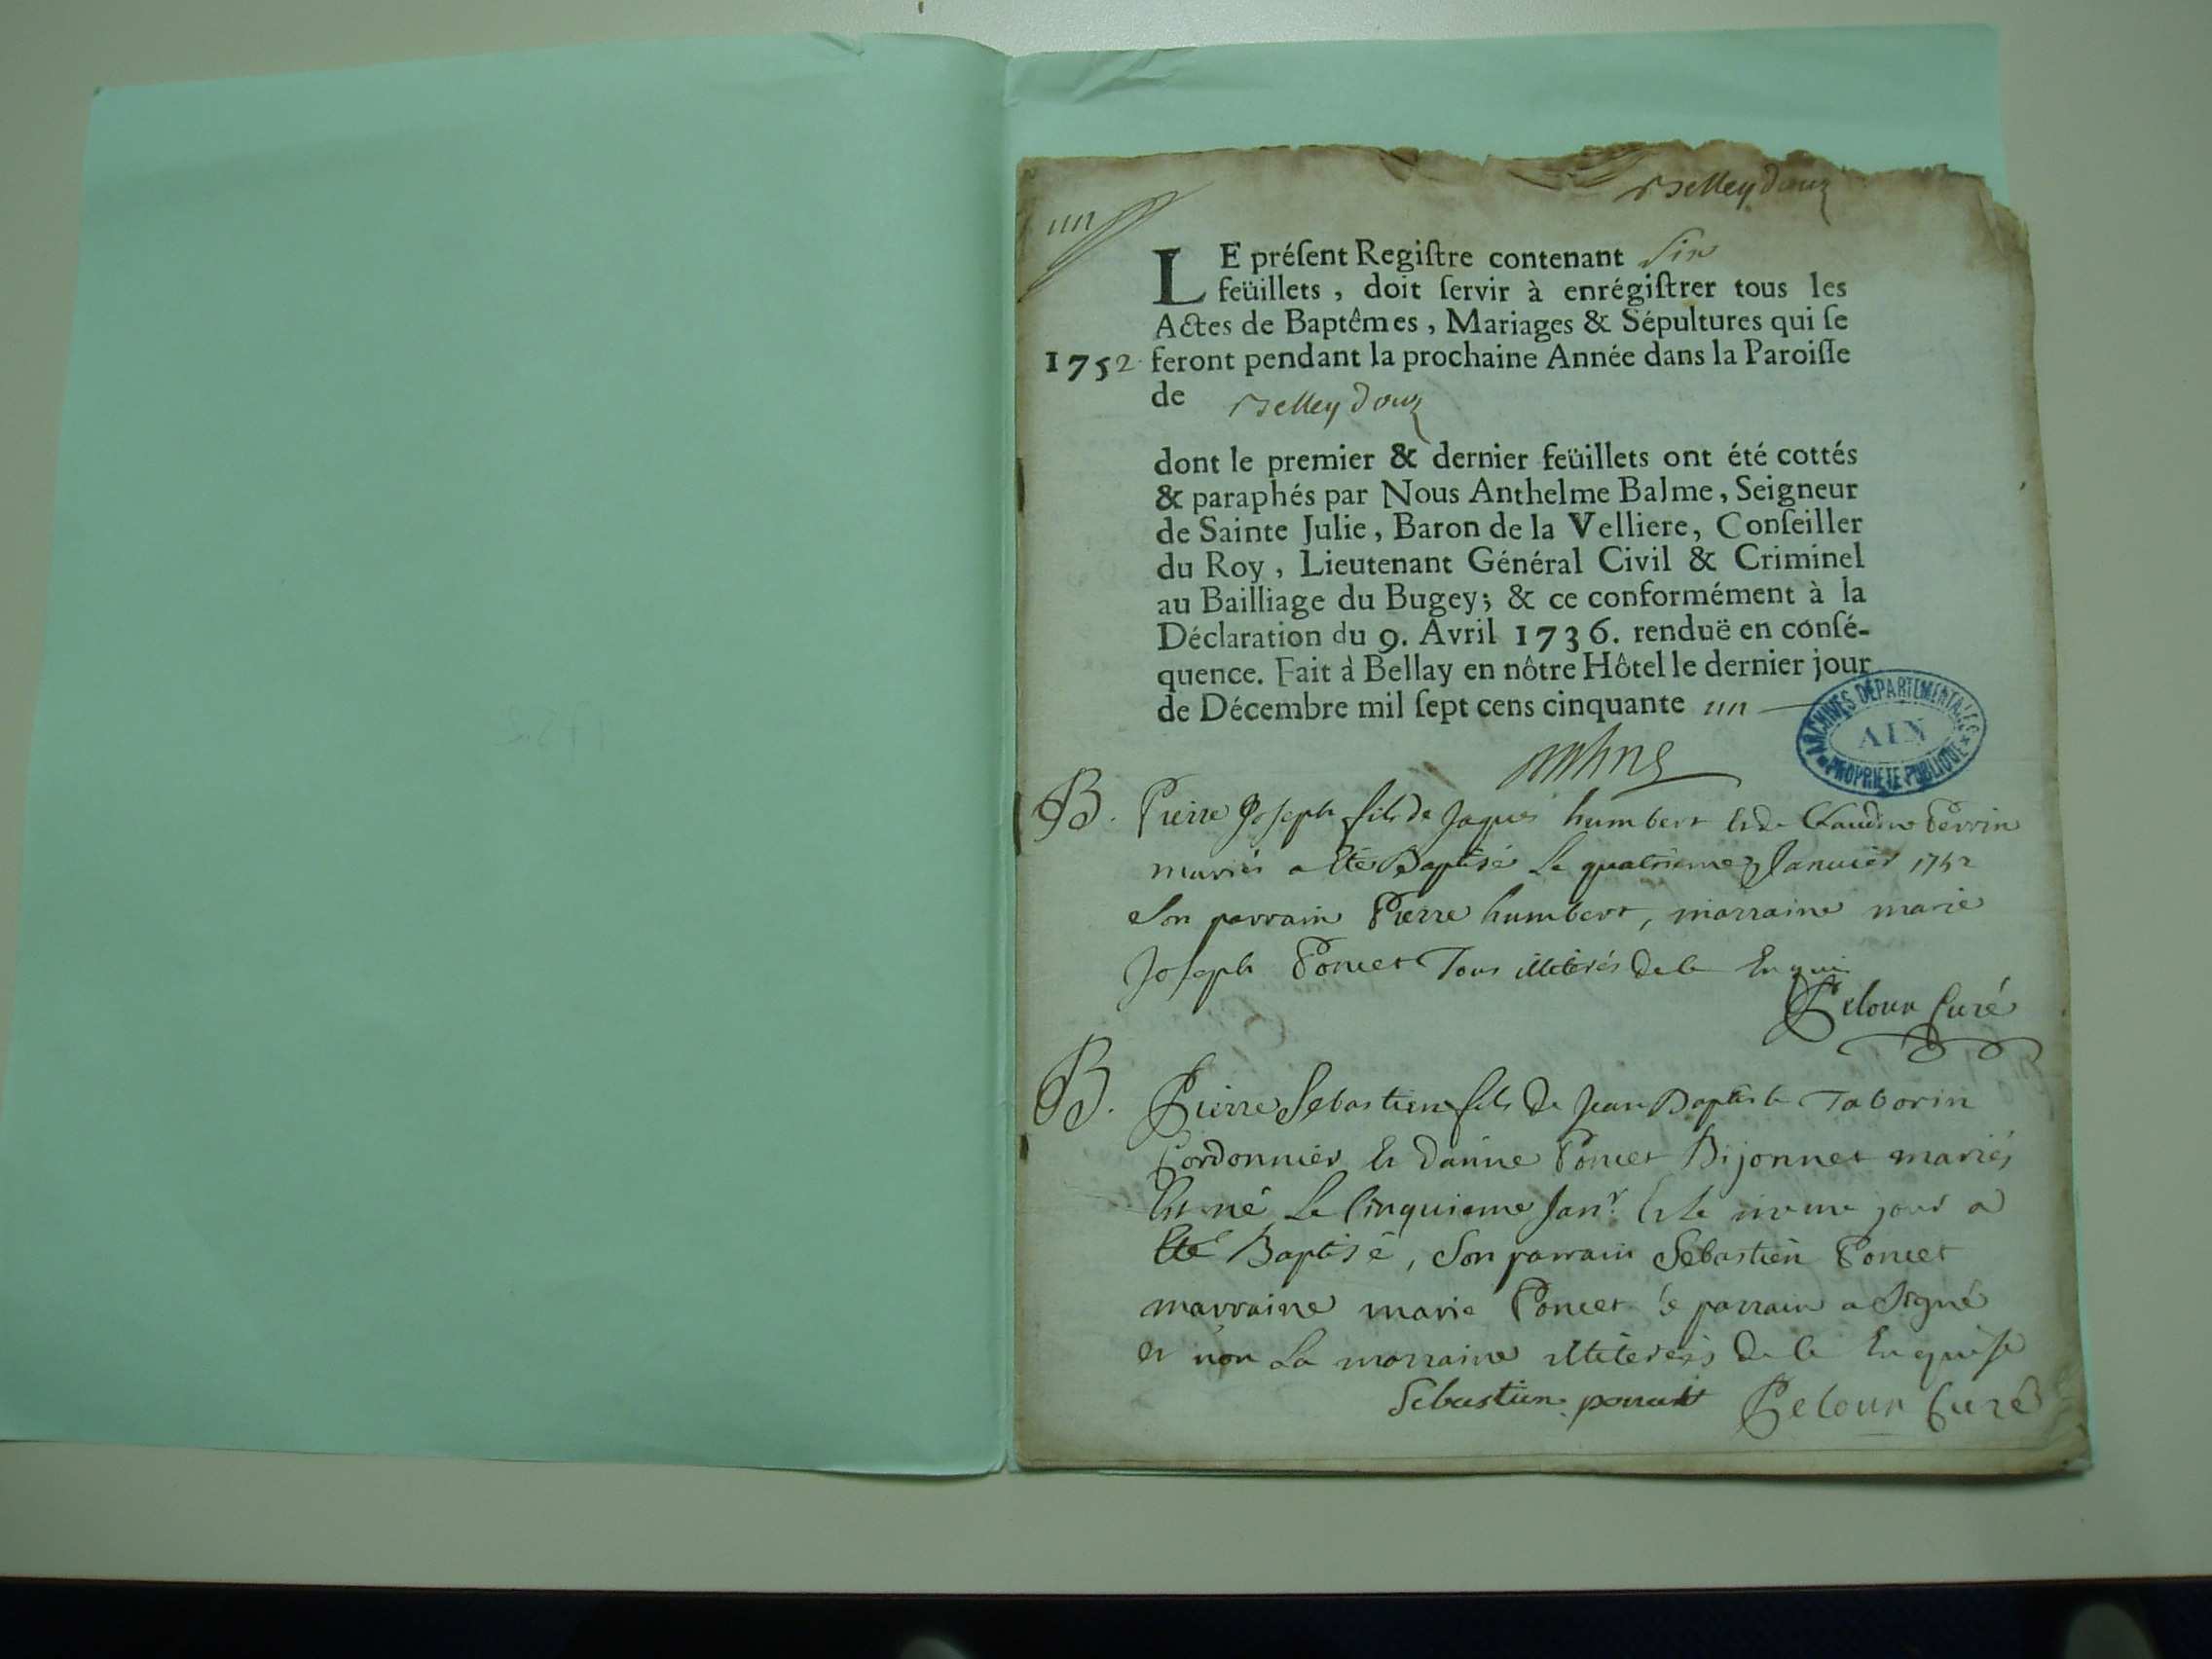 Belleydoux
un
LE préſent Regiſtre contenant Six
feüillets, doit ſervir à enrégiſtrer tous les
Actes de Baptêmes, Mariages & Sépultures qui ſe
1752 feront pendant la prochaine Année dans la Paroiſſe
de Belleydoux
dont le premier & dernier feüillets ont été cottés
& paraphés par Nous Anthelme Balme, Seigneur
de Sainte Julie, Baron de la Velliere, Conſeiller
du Roy, Lieutenant Général Civil & Criminel
au Bailliage du Bugey; & ce conformément à la
Déclaration du 9. Avril 1736. renduë en conſé-
quence. Fait à Bellay en nôtre Hôtel le dernier jour
de Décembre mil ſept cens cinquante un
ARCHIVES DÉPARTEMENTALES
AIN
PROPRIÉTÉ PUBLIQUE
B. Pierre Joseph fils de Jaques humbert et de Claudine Perrin
mariés a été Baptisé Le quatrieme Janvier 1752
Son parrain Pierre humbert, marraine marie
Joseph Poncet Tous illiterés de ce Enquis
Peloux Curé
B. Pierre Sebastien fils de Jean Baptiste Taborin
Cordonnier et danne Poncet Bijonnet mariés
Est né Le Cinquieme Janr. Et le meme jour a
été Baptisé, Son parrain Sebastien Poncet
marraine marie Poncet le parrain a Signé
et non La marraine illiterée de ce Enquise
Sebastien poncet Peloux Curé
1752